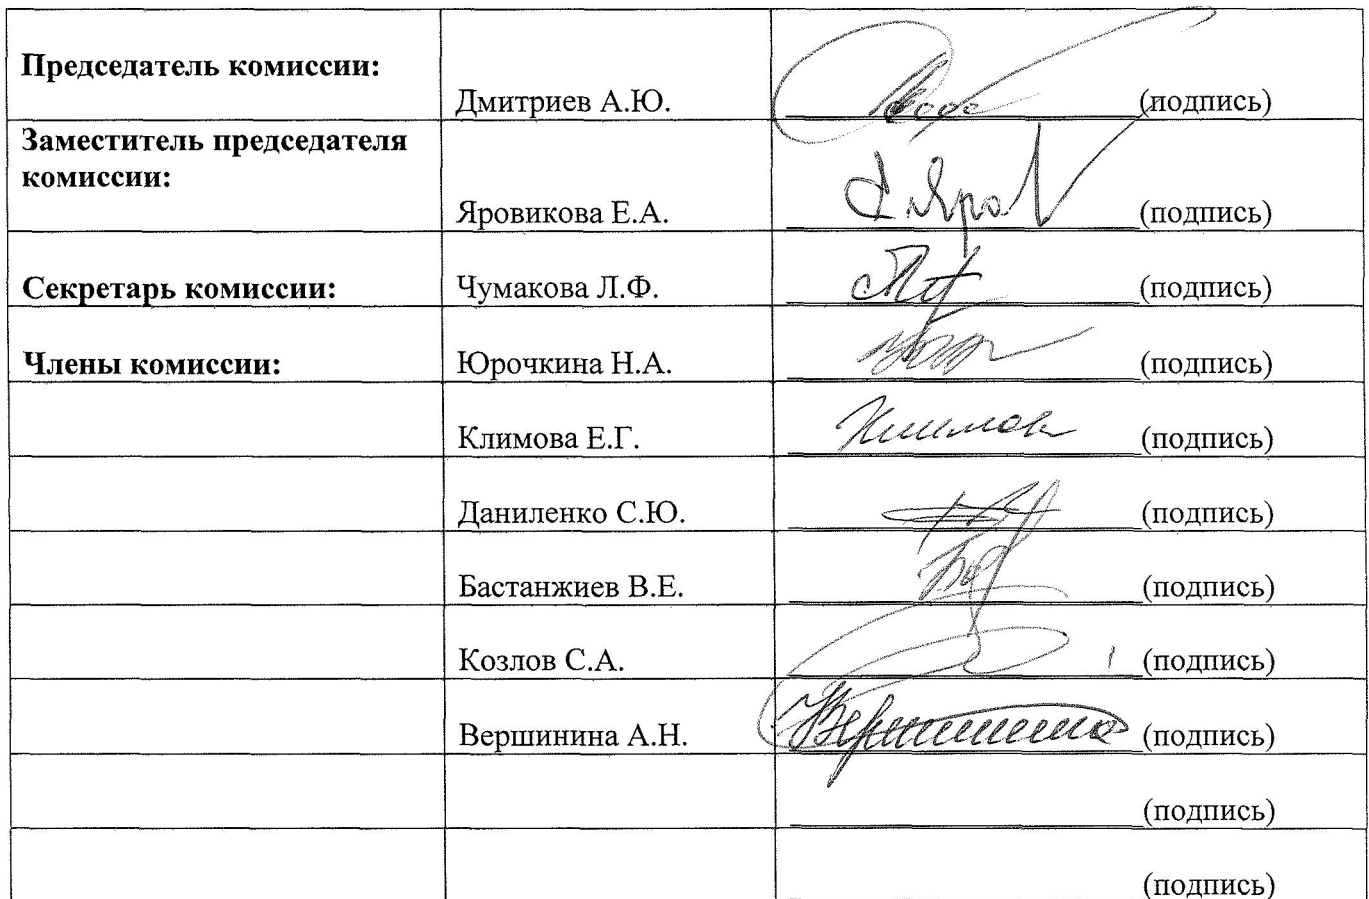 Председатель комиссии:
Дмитриев А.Ю. (подпись)
Заместитель председателя
комиссии:
Яровикова Е.А. (подпись)
Секретарь комиссии: Чумакова Л.Ф. (подпись)
Члены комиссии: Юрочкина Н.А. (подпись)
Климова Е.Г. (подпись)
Даниленко С.Ю. (подпись)
Бастанжиев В.Е. (подпись)
Козлов С.А. (подпись)
Вершинина А.Н. Вершинина (подпись)
(подпись)
(подпись)